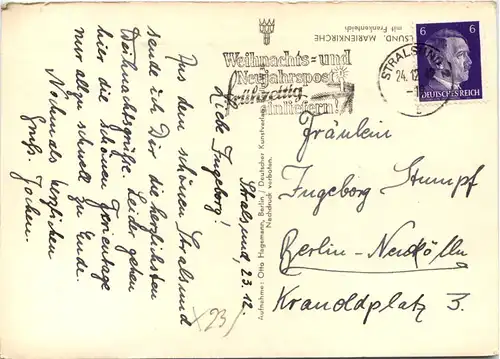 Stralsund, 23.12.
Liebe Ingeborg!
Aus dem schönen Stralsund
sende ich Dir die herzlichsten
Weihnachtsgrüße. Leider gehen
hier die schönen Ferientage
nur allzu schnell zu Ende.
Nochmals herzlichen
Gruß. Jochen.
x23)
Aufnahme: Otto Hagemann, Berlin / Deutscher Kunstverlag
Nachdruck verboten.
SUND, MARIENKIRCHE
mit Frankenteich
Weihnachts= und
Neujahrspost
frühzeitig
einliefern!
STRALSUND
24.12.
6 6
DEUTSCHES REICH
Fräulein
Ingeborg Stumpf
Berlin-Neukölln
Kranoldplatz 3.